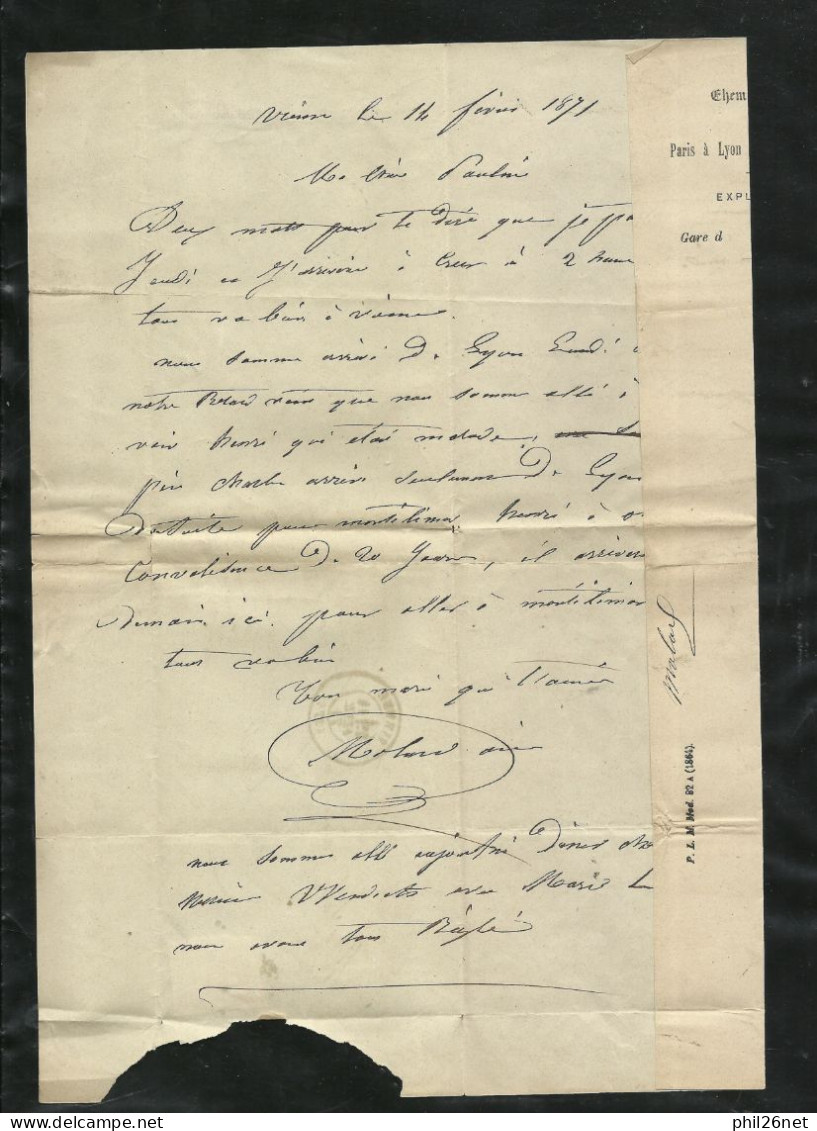 le 14 février 1871
Ma chère Pauline
Deux mots pour te dire que je pa
Jeudi et J'arrivere à Crest à 2 heure
tous va bien à vienne
nous somme arrivé De Lyon Lundi
notre Retard vient que nous somme allé à
voir henri qui était malade,
père charle arrive seulement De Lyon
Densuite pour montelimar, henri à
Convalidence De 20 Jours, il arrivera
Demain ici pour aller à montelimar
tous va bien
Ton mari qui t'aime
Molard
nous somme allé aujourdhui Diner che
avec Marie
nous avons tous Réglé
Chem
Paris à Lyon
EXPL
Gare d
Molard
P. L. M. Mod. 82 A (1864).
phil26net